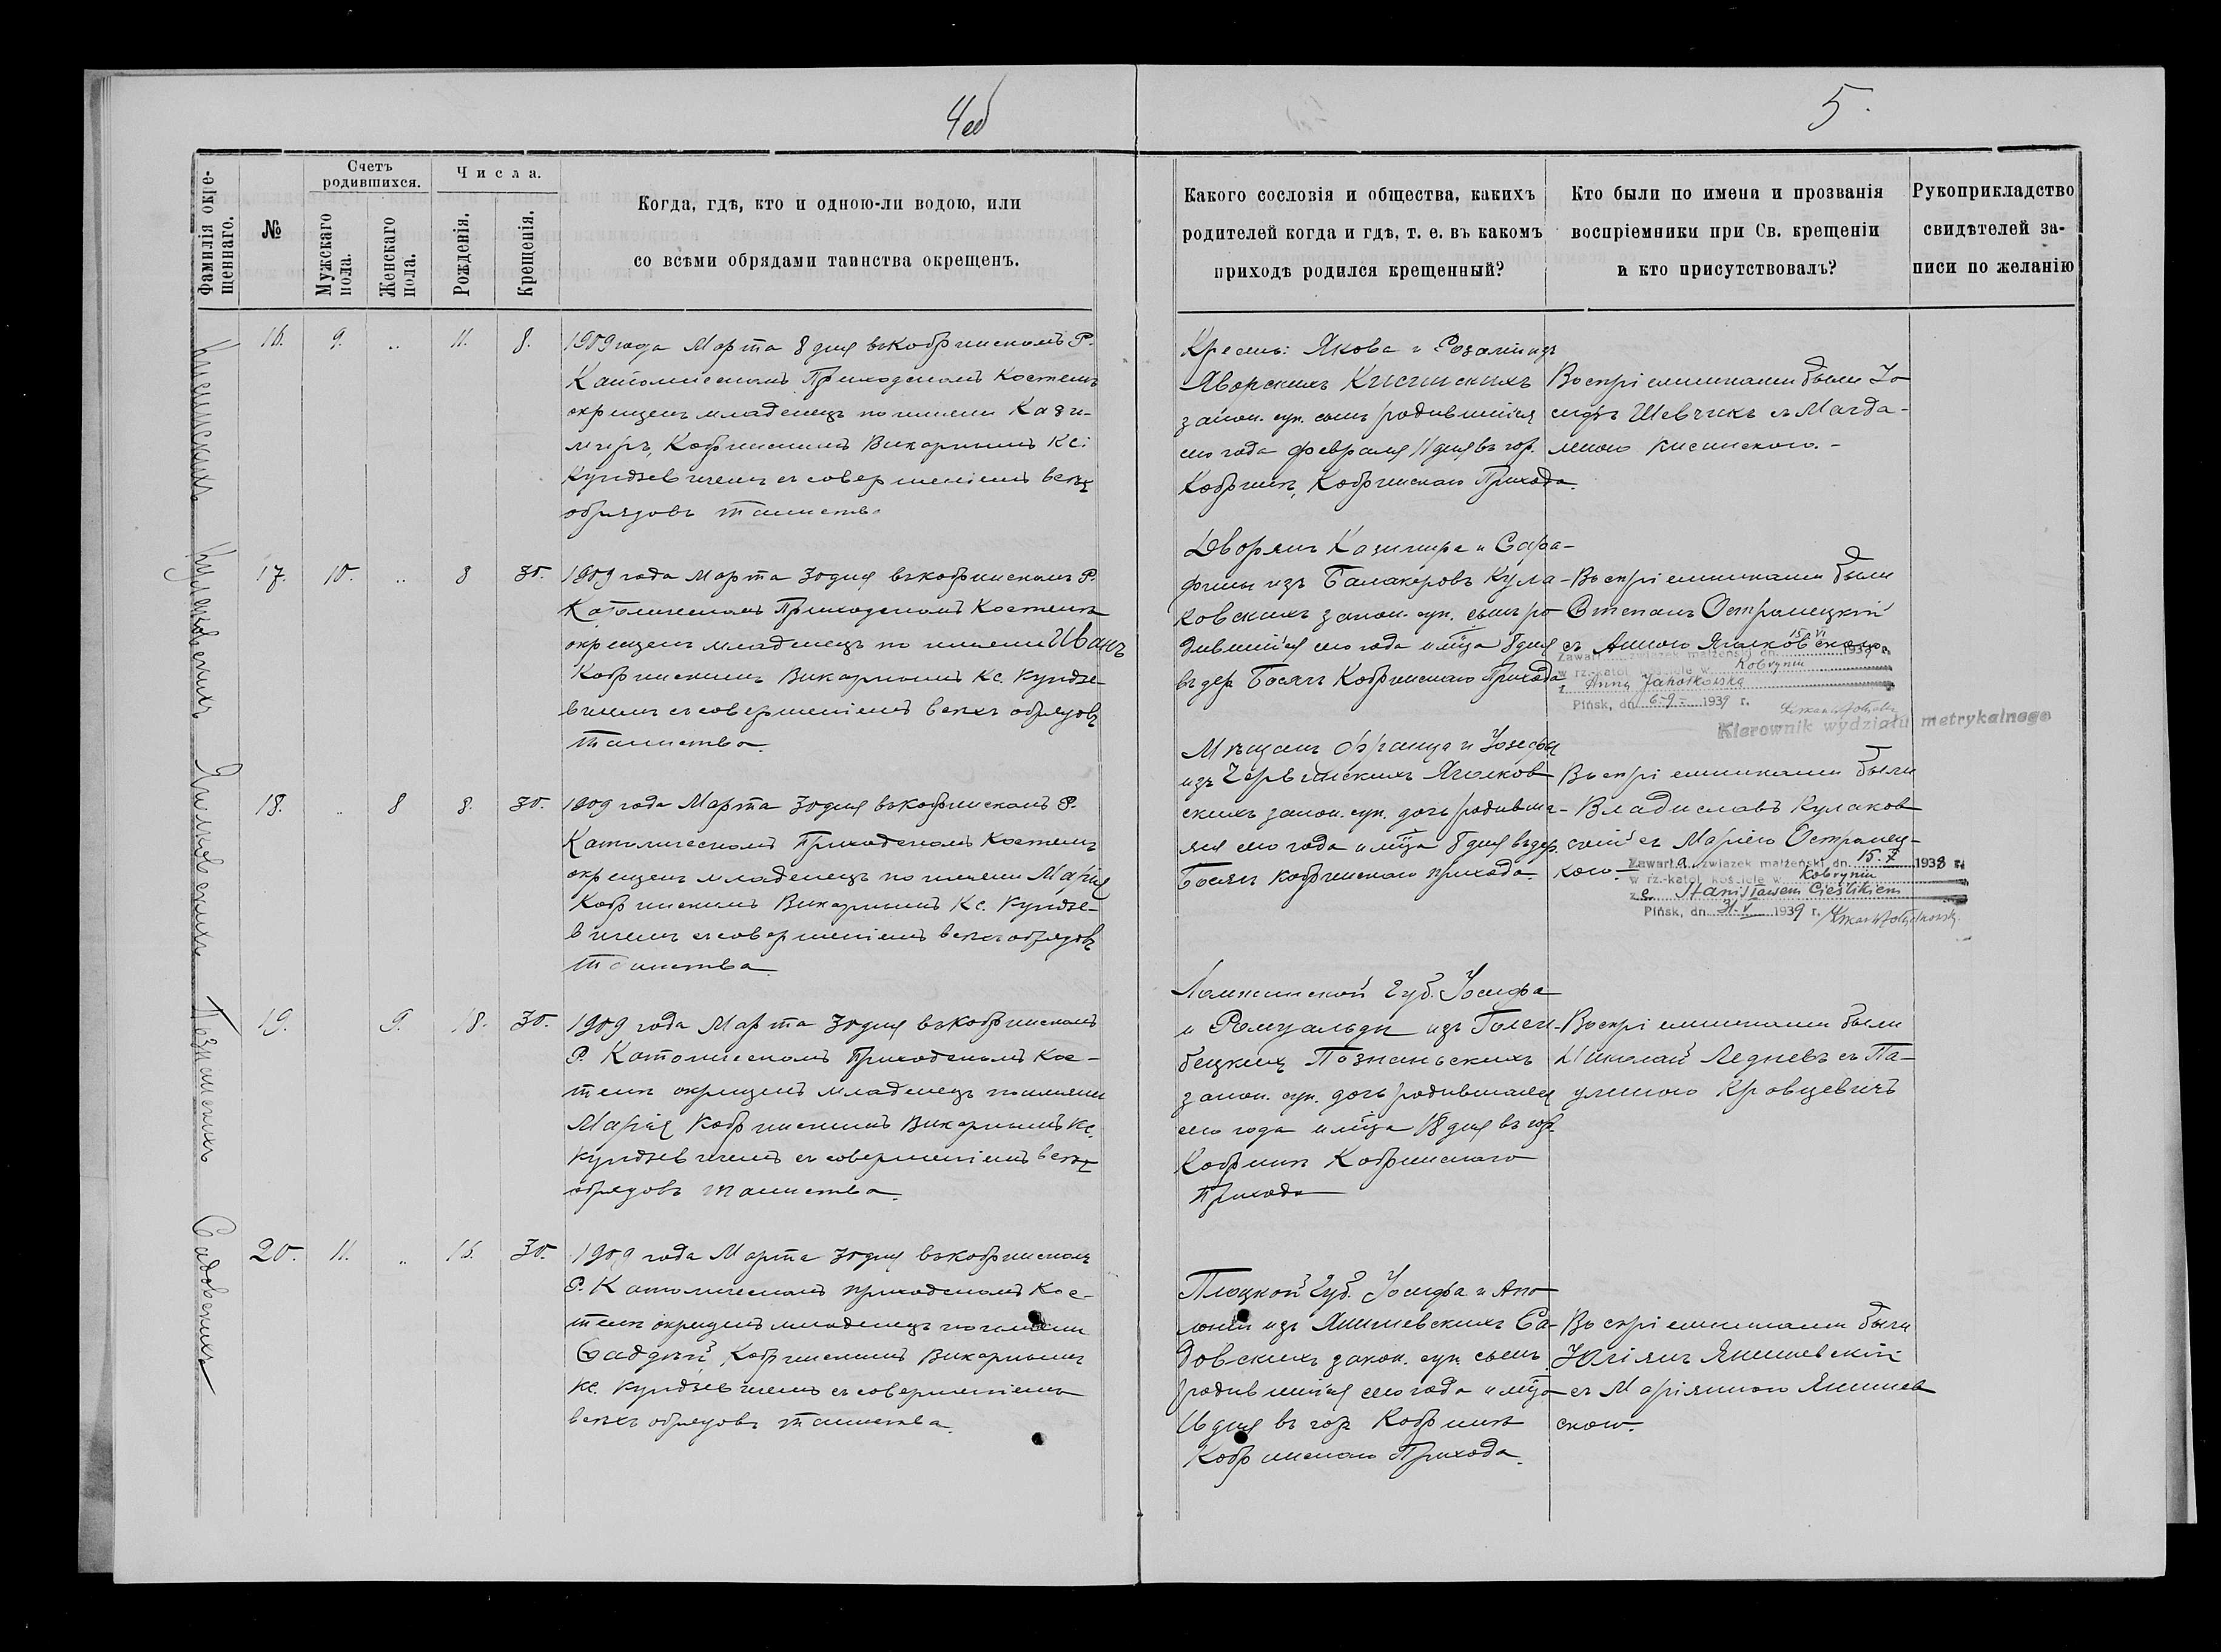 4об
5.
Фамилія окре-
щеннаго.
№
Счетъ
родившихся.
Мужскаго
пола.
Женскаго
пола.
Числа.
Рожденія.
Крещенія.
Когда, гдѣ, кто и одною-ли водою, или
со всѣми обрядами таинства окрещенъ.
Какого сословія и общества, какихъ
родителей когда и гдѣ, т. е. въ какомъ
приходѣ родился крещенный?
Кто были по имени и прозванія
воспріемники при Св. крещеніи
и кто присутствовалъ?
Рукоприкладство
свидѣтелей за-
писи по желанію
16. 9. .. 11. 8.
1909 года Марта 8 дня въ Кобринскомъ Р.
Католическомъ Приходскомъ Костелѣ
окрещенъ младенецъ по имени Кази-
миръ, Кобринскимъ Викарнымъ Кс:
Кундзевичемъ съ совершеніемъ всѣхъ
обрядовъ таинства
Яворскихъ
закон. суп. сынъ родившійся
сего года февраля 11 дня въ гор.
Кобринѣ, Кобринскаго Прихода.
Воспріемниками были Іо
сифъ Шевчикъ съ Магда-
Кулаковскихъ
17. 10. .. 8 30.
1909 года Марта 30 дня въ Кобринскомъ Р.
Католическомъ Приходскомъ Костелѣ
окрещенъ младенецъ по имени Иванъ
Кобринскимъ Викарнымъ Кс. Кундзе-
вичемъ съ совершеніемъ всѣхъ обрядовъ
таинства.
Дворянъ Казимира и Сера-
фины изъ Кула-
ковскихъ закон. суп. сынъ ро-
дившійся сего года и мца 8 дня
въ дер. Кобринскаго Прихода
Воспріемниками были
Степанъ Островецкій
съ Анною
Zawarł związek małżeński dn. 15 VI 1939 r.
w rz.-katol. kościele w Kobryniu
z Anną Jahołkowską
Pińsk, dn. 6-9- 1939 r.
Kierownik wydziału metrykalnego
18. .. 8 8. 30.
1909 года Марта 30 дня въ Кобринскомъ Р.
Католическомъ Приходскомъ Костелѣ
окрещенъ младенецъ по имени Марія
Кобринскимъ Викарнымъ Кс. Кундзе-
вичемъ съ совершеніемъ всѣхъ обрядовъ
таинства
Мѣщанъ Франца и Іозефы
изъ Червинскихъ Яголков
скихъ закон. суп. дочь родивша-
яся сего года и мца 8 дня въ дер.
Кобринскаго прихода.
Воспріемниками были
Владиславъ Кулаков
скій съ Маріею Островец-
кою.
Zawarła związek małżeński dn. 15. X 1938 r.
w rz.-katol. kościele w Kobryniu
z e Stanisławem Cieślikiem
Pińsk, dn. 31. V 1939 r.
19. 9. 18. 30.
1909 года Марта 30 дня въ Кобринскомъ
Р. Католическомъ Приходскомъ Кос-
телѣ окрещенъ младенецъ по имени
Марія Кобринскимъ Викарнымъ Кс.
Кундзевичемъ съ совершеніемъ всѣхъ
обрядовъ таинства.
Ломжинской Губ. Іосифа
и Ромуальды изъ
закон. суп. дочь родившаяся
сего года и мца 18 дня въ гор.
Кобринѣ Кобринскаго
Прихода
Воспріемниками были
Николай Ледневъ съ Па-
улиною Кровцевичъ
Садовскихъ
20. 11. .. 16. 30.
1909 года Марта 30 дня въ Кобринскомъ
Р. Католическомъ приходскомъ Кос-
телѣ окрещенъ младенецъ по имени
Фаддѣй, Кобринскимъ Викарнымъ
Кс. Кундзевичемъ съ совершеніемъ
всѣхъ обрядовъ таинства.
Плоцкой Губ. Іосифа и Апо
лоніи изъ Янишевскихъ Са-
довскихъ закон. суп. сынъ
родившійся сего года и мца
16 дня въ гор. Кобринѣ
Кобринскаго Прихода.
Воспріемниками были
Юліянъ Янишевскій
съ Маріянною Янишев
скою.